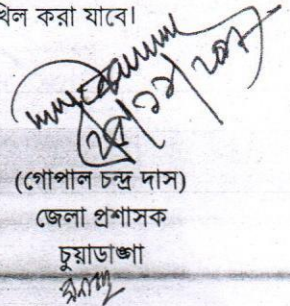 খিল করা যাবে।
(গোপাল চন্দ্র দাস)
জেলা প্রশাসক
চুয়াডাঙ্গা